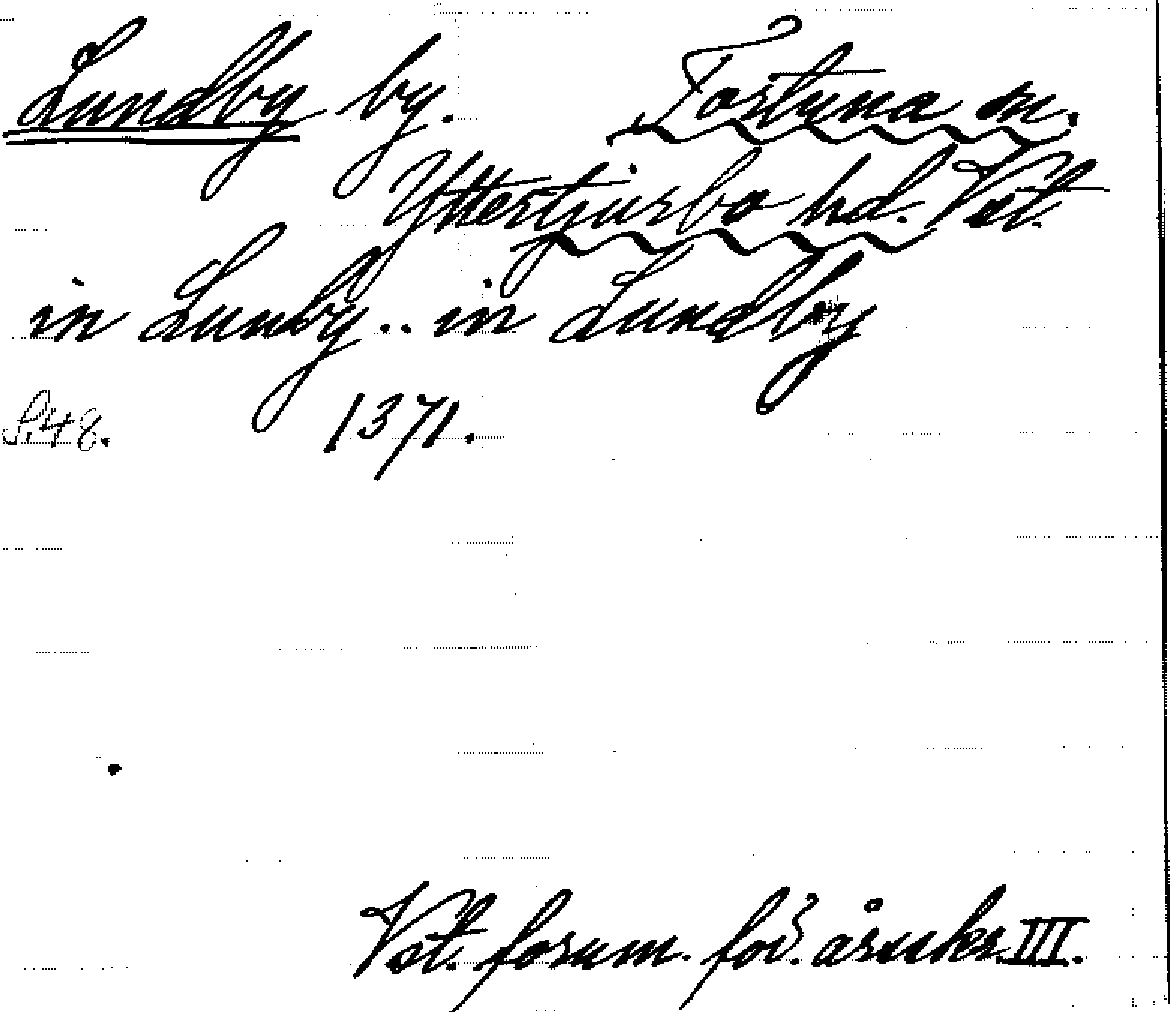 Lundby by. Tortuna sn.
Yttertjurbo hd. Vstm.
in Lunby .. in Lundby
S. 48. 1371.
Vst. fornm. för. årsskr. III.